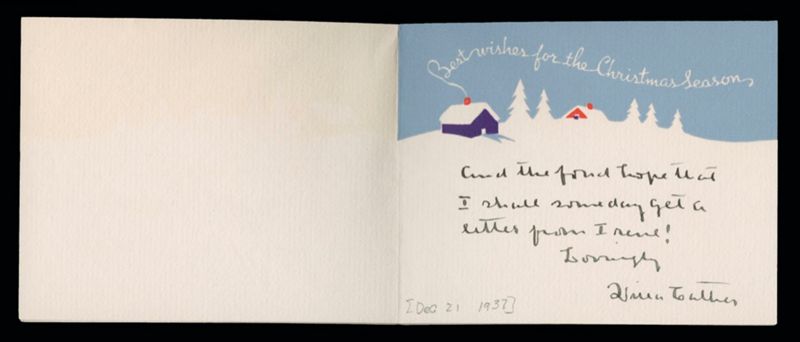 Best wishes for the Christmas Season,
And the fond hope that
I shall someday get a
letter from Irene!
Lovingly
Willa Cather
[Dec 21 1937]